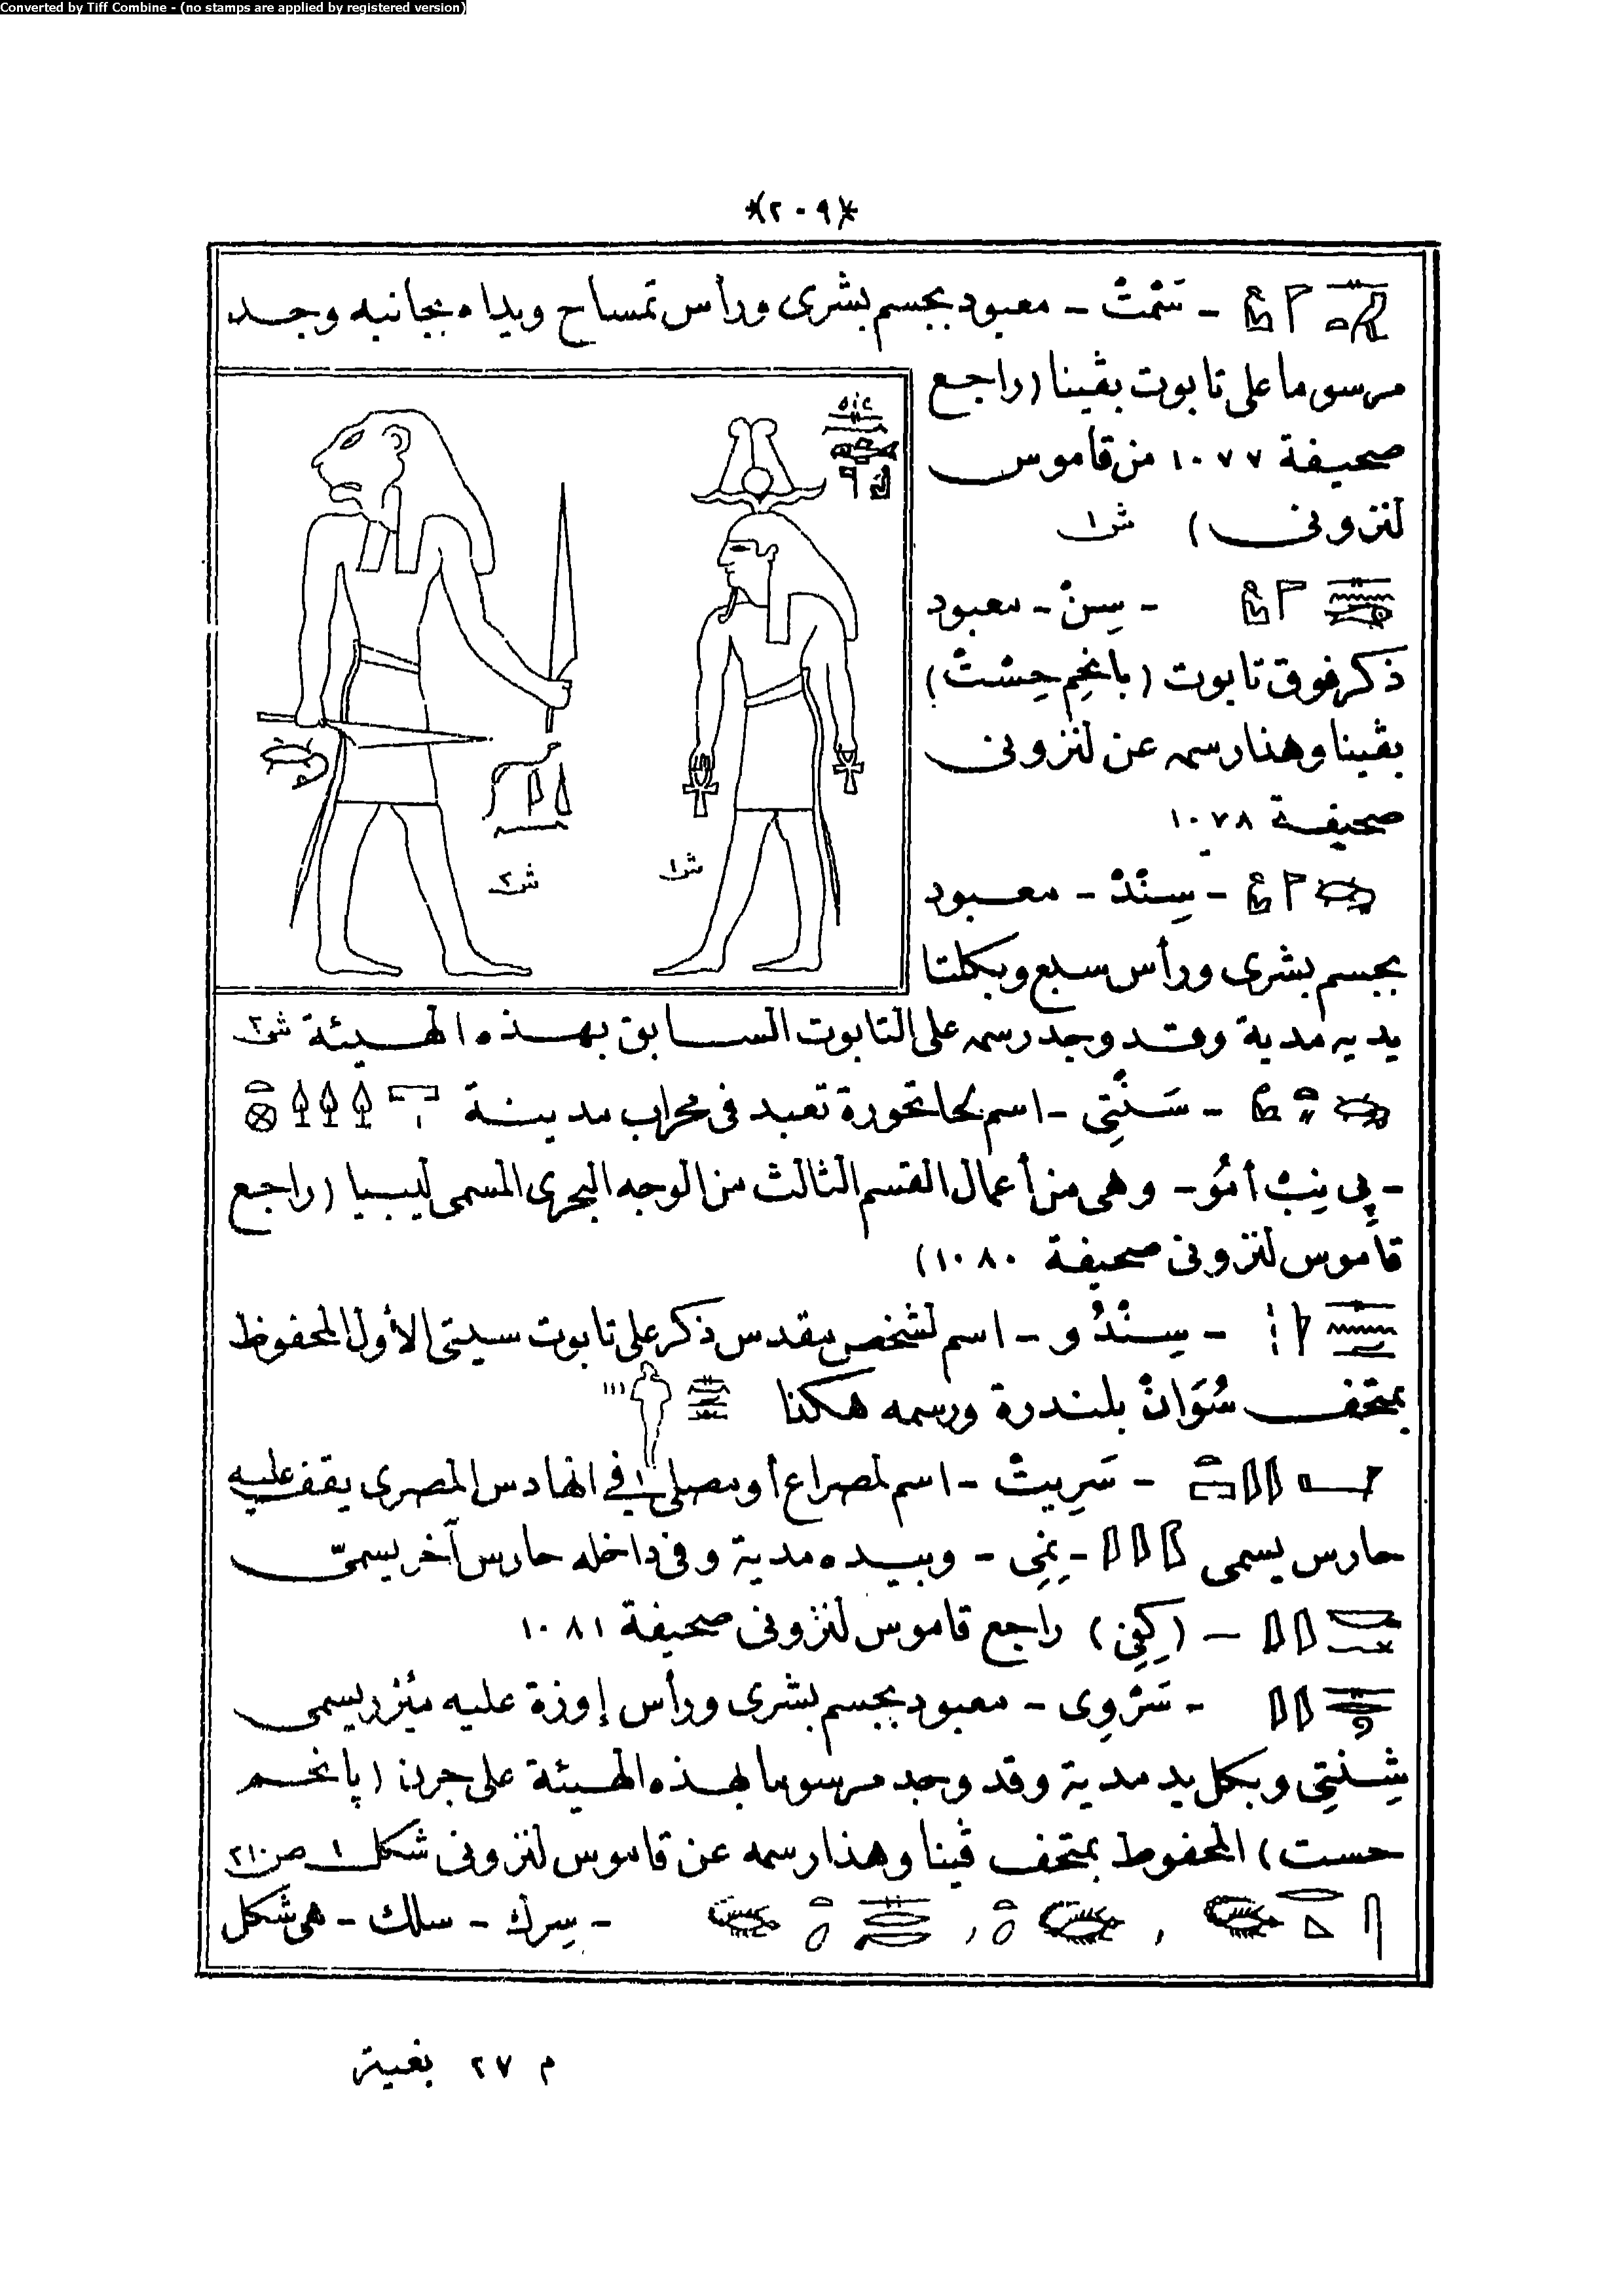 Converted by Tiff Combine - (no stamps are applied by registered version)
*(٢٠٩)*
- سَمْتْ - معبود بجسم بشرى ورأس تمساح ويداه بجانبه وجد
مرسوما على تابوت بڤينا (راجع
صحيفة ١٠٧٧ من قاموس
لنزونى) ش١
- سِنْ - معبود
ذكر فوق تابوت (بانخِم حِسْتْ)
بڤينا وهذا رسمه عن لنزونى
صحيفة ١٠٧٨
- سِنْدْ - معبود
بجسم بشرى ورأس سبع وبكلتا
يديه مدية وقد وجد رسمه على التابوت السابق بهذه الهيئة ش٢
ش١
ش٢
- سَنْتِى - اسم لحاتحورة تعبد فى محراب مدينة
- پِى نِبْ أمُو - وهى من أعمال القسم الثالث من الوجه البحرى المسمى ليبيا (راجع
قاموس لنزونى صحيفة ١٠٨٠)
- سِنْدُو - اسم لشخص مقدس ذكر على تابوت سيتى الأول المحفوظ
بمتحف سُوَانْ بلندرة ورسمه هكذا
- سَرِيتْ - اسم لمصراع أو مصلى فى الهادس المصرى يقف عليه
حارس يسمى - نِمِى - وبيده مدية وفى داخله حارس آخر يسمىّ
- (كِفِى) راجع قاموس لنزونى صحيفة ١٠٨١
- سَرْوِى - معبود بجسم بشرى ورأس إوزة عليه مئزر يسمى
شِنْتِى وبكل يد مدية وقد وجد مرسوما بهذه الهيئة على جرن (پانخم
حست) المحفوظ بمتحف ڤينا وهذا رسمه عن قاموس لنزونى شكل ١ ص ٢١٠
- سِرك - سلك - هى شكل
م ٢٧ بغية